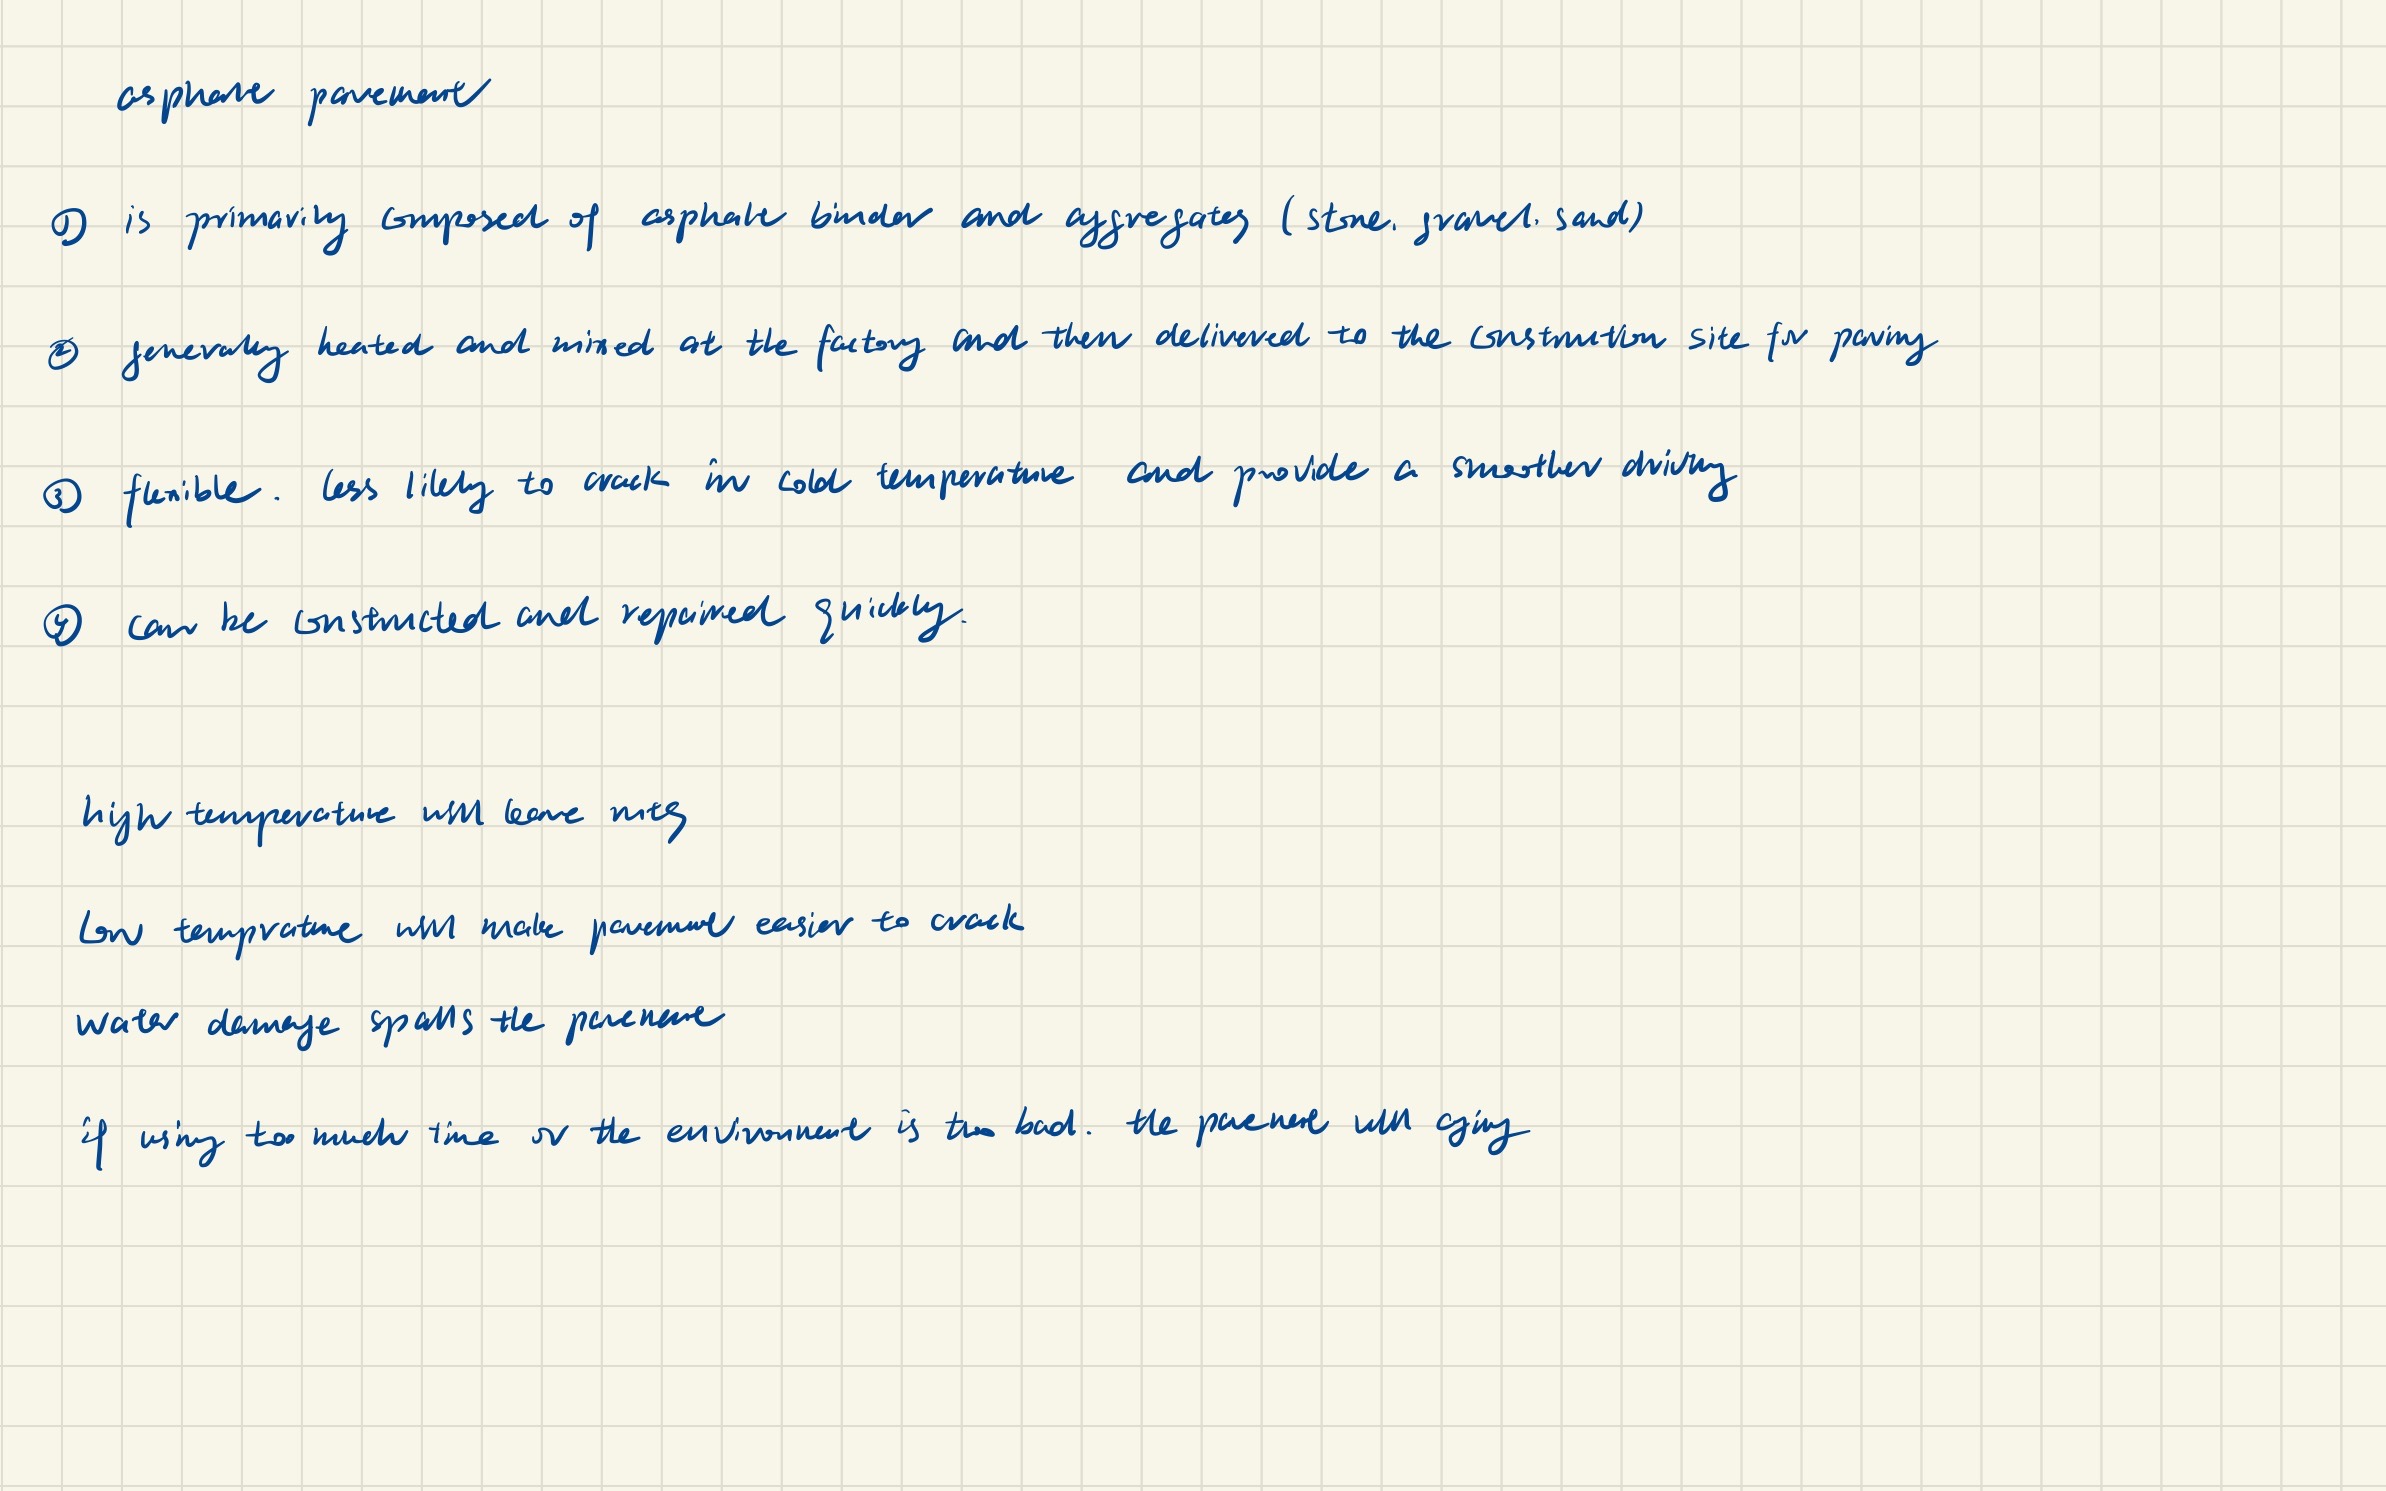 asphalt pavement
① is primarily composed of asphalt binder and aggregates (stone. gravel. sand)
② generally heated and mixed at the factory and then delivered to the construction site for paving
③ flexible. less likely to crack in cold temperature and provide a smoother driving
④ can be constructed and repaired quickly.
high temperature will leave ruts
Low temprature will make pavement easier to crack
water damage spalls the pavement
if using too much time or the environment is too bad. the pavement will aging